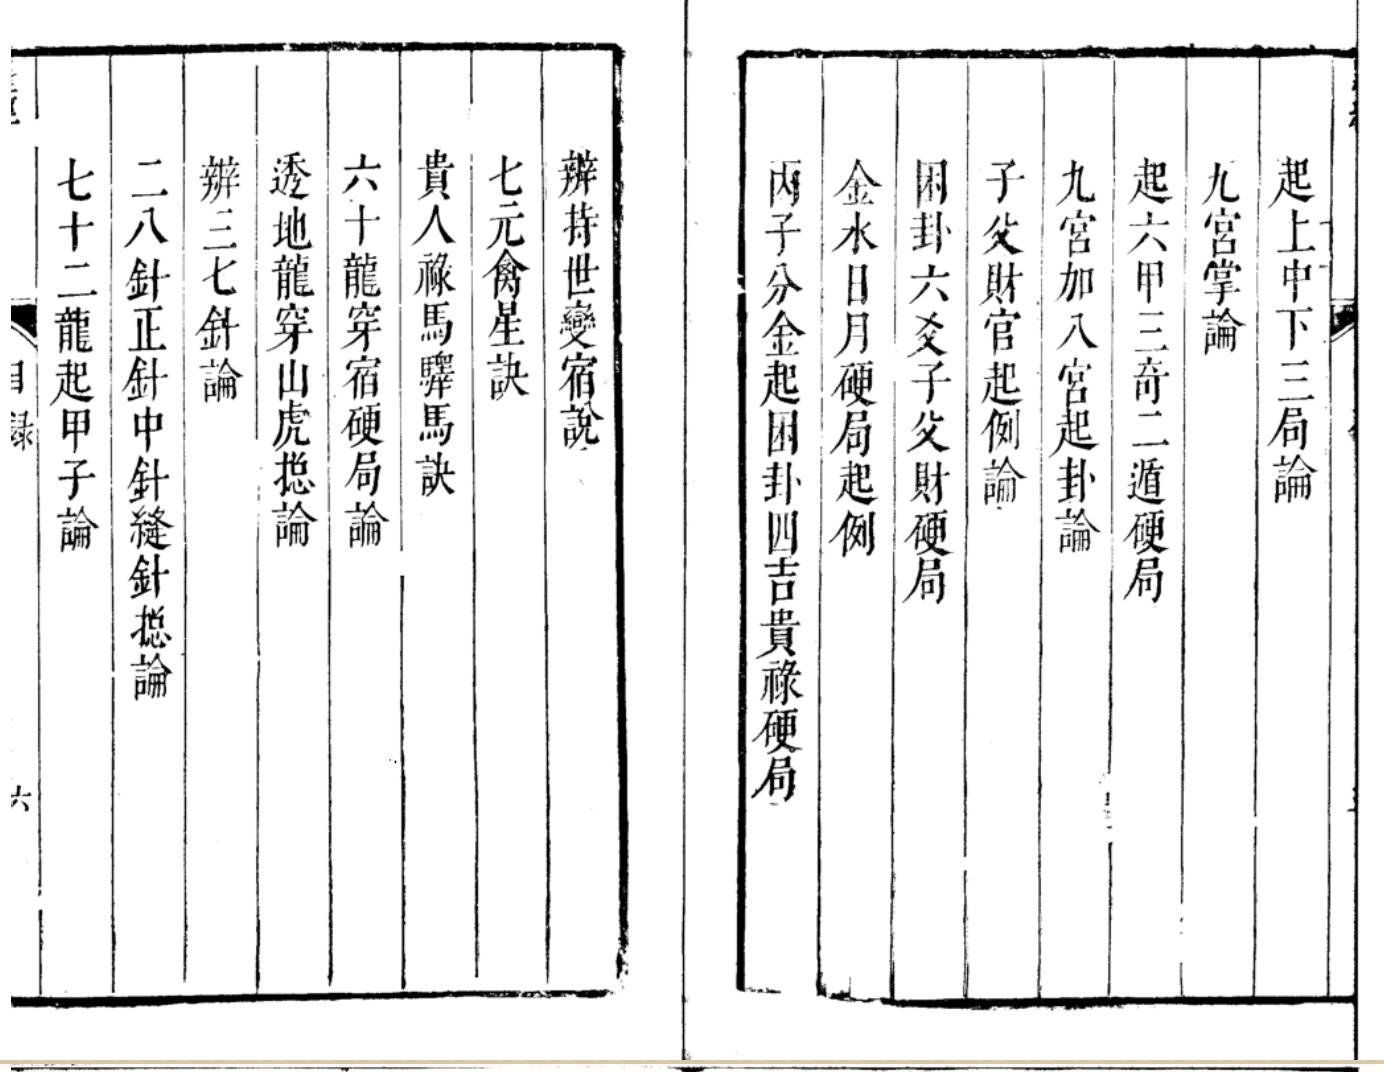 起上中下三局論
九宮掌論
起六甲三奇二遁硬局
九宮加八宮起卦論
子父財官起例論
困卦六爻子父財硬局
金水日月硬局起例
丙子分金起困卦四吉貴祿硬局
辨持世變宿說
七元禽星訣
貴人祿馬驛馬訣
六十龍穿宿硬局論
透地龍穿山虎揔論
辨三七針論
二八針正針中針縫針揔論
七十二龍起甲子論
目錄
六